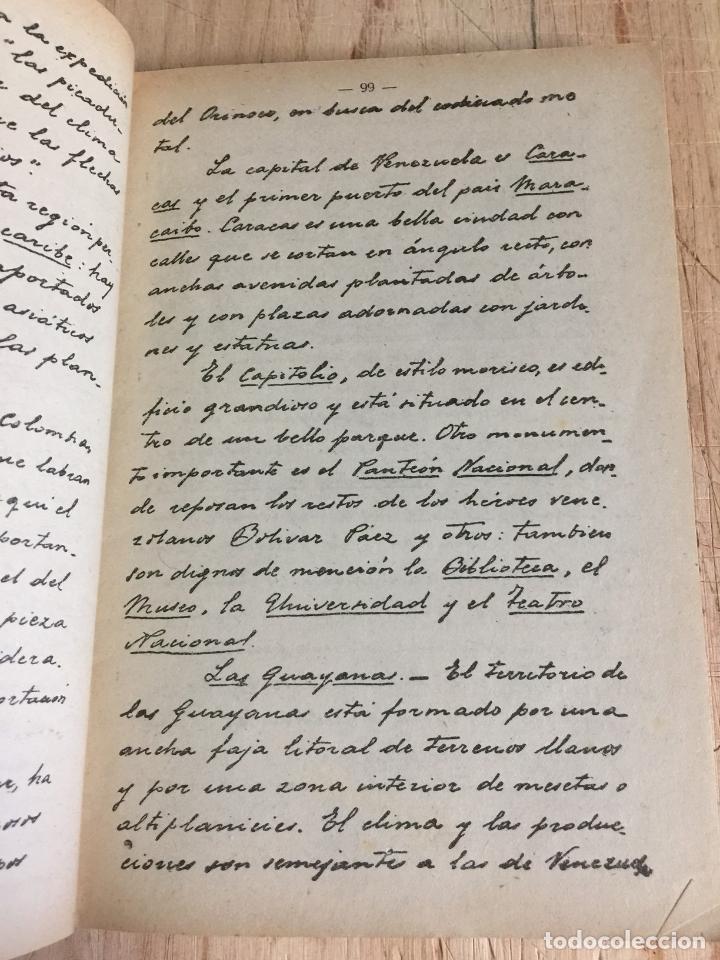 la expedición
"las picadu-
del clima
las flechas
ios."
ta región per-
caribe: hay
portados
asiáticos
las plan-
Colombia,
ue labran
qui el
portan-
el del
pieza
idera.
portación
ha
osos
pos
— 99 —
del Orinoco, en busca del codiciado me
tal.
La capital de Venezuela es Cara-
cas y el primer puerto del país Mara-
caibo. Caracas es una bella ciudad con
calles que se cortan en ángulo recto, con
anchas avenidas plantadas de árbo-
les y con plazas adornadas con jardi-
nes y estatuas.
El Capitolio, de estilo morisco, es edi-
ficio grandioso y está situado en el cen-
tro de un bello parque. Otro monumen-
to importante es el Panteón Nacional, don-
de reposan los restos de los héroes vene-
zolanos Bolivar Páez y otros: tambien
son dignos de mención la Biblioteca, el
Museo, la Universidad y el Teatro
Nacional.
Las Guayanas. — El territorio de
las Guayanas está formado por una
ancha faja litoral de terrenos llanos
y por una zona interior de mesetas o
altiplanicies. El clima y las produc-
ciones son semejantes a las de Venezuela
todocoleccion